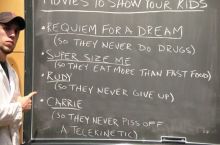 MOVIES TO SHOW YOUR KIDS
• REQUIEM FOR A DREAM
(SO THEY NEVER DO DRUGS)
• SUPER SIZE ME
(SO THEY EAT MORE THAN FAST FOOD)
• RUDY
(SO THEY NEVER GIVE UP)
• CARRIE
(SO THEY NEVER PISS OFF
A TELEKINETIC)